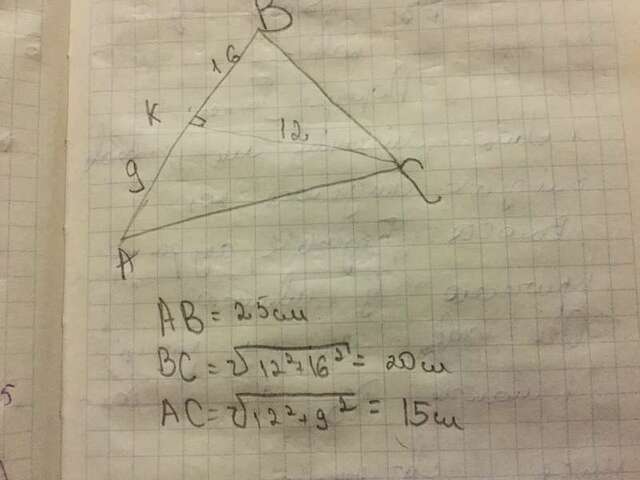 B
16
K
12
9
C
A
AB = 25см
BC = √12²+16² = 20см
AC = √12²+9² = 15см
5